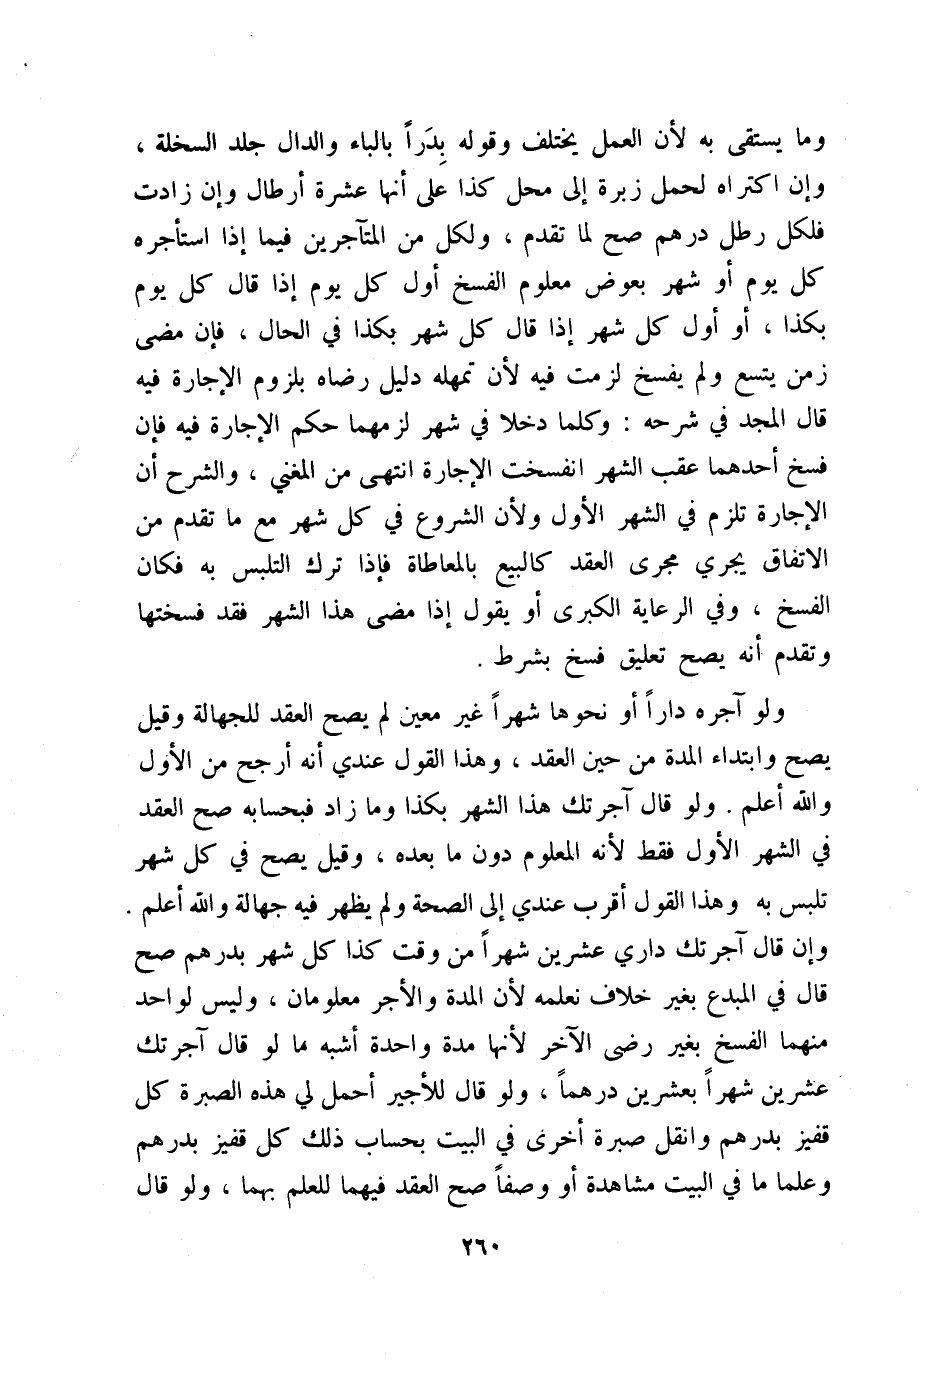 وما يستقى به لأن العمل يختلف وقوله بِدَراً بالباء والدال جلد السخلة ،
وإن اكتراه لحمل زبرة إلى محل كذا على أنها عشرة أرطال وإن زادت
فلكل رطل درهم صح لما تقدم ، ولكل من المتآجرين فيما إذا استأجره
كل يوم أو شهر بعوض معلوم الفسخ أول كل يوم إذا قال كل يوم
بكذا ، أو أول كل شهر إذا قال كل شهر بكذا في الحال ، فإن مضى
زمن يتسع ولم يفسخ لزمت فيه لأن تمهله دليل رضاه بلزوم الإجارة فيه
قال المجد في شرحه : وكلما دخلا في شهر لزمهما حكم الإجارة فيه فإن
فسخ أحدهما عقب الشهر انفسخت الإجارة انتهى من المغني ، والشرح أن
الإجارة تلزم في الشهر الأول ولأن الشروع في كل شهر مع ما تقدم من
الاتفاق يجري مجرى العقد كالبيع بالمعاطاة فإذا ترك التلبس به فكان
الفسخ ، وفي الرعاية الكبرى أو يقول إذا مضى هذا الشهر فقد فسختها
وتقدم أنه يصح تعليق فسخ بشرط .
ولو آجره داراً أو نحوها شهراً غير معين لم يصح العقد للجهالة وقيل
يصح وابتداء المدة من حين العقد ، وهذا القول عندي أنه أرجح من الأول
والله أعلم . ولو قال آجرتك هذا الشهر بكذا وما زاد فبحسابه صح العقد
في الشهر الأول فقط لأنه المعلوم دون ما بعده ، وقيل يصح في كل شهر
تلبس به وهذا القول أقرب عندي إلى الصحة ولم يظهر فيه جهالة والله أعلم .
وإن قال آجرتك داري عشرين شهراً من وقت كذا كل شهر بدرهم صح
قال في المبدع بغير خلاف نعلمه لأن المدة والأجر معلومان ، وليس لواحد
منهما الفسخ بغير رضى الآخر لأنها مدة واحدة أشبه ما لو قال آجرتك
عشرين شهراً بعشرين درهماً ، ولو قال للأجير أحمل لي هذه الصبرة كل
قفيز بدرهم وانقل صبرة أخرى في البيت بحساب ذلك كل قفيز بدرهم
وعلما ما في البيت مشاهدة أو وصفاً صح العقد فيهما للعلم بهما ، ولو قال
٢٦٠